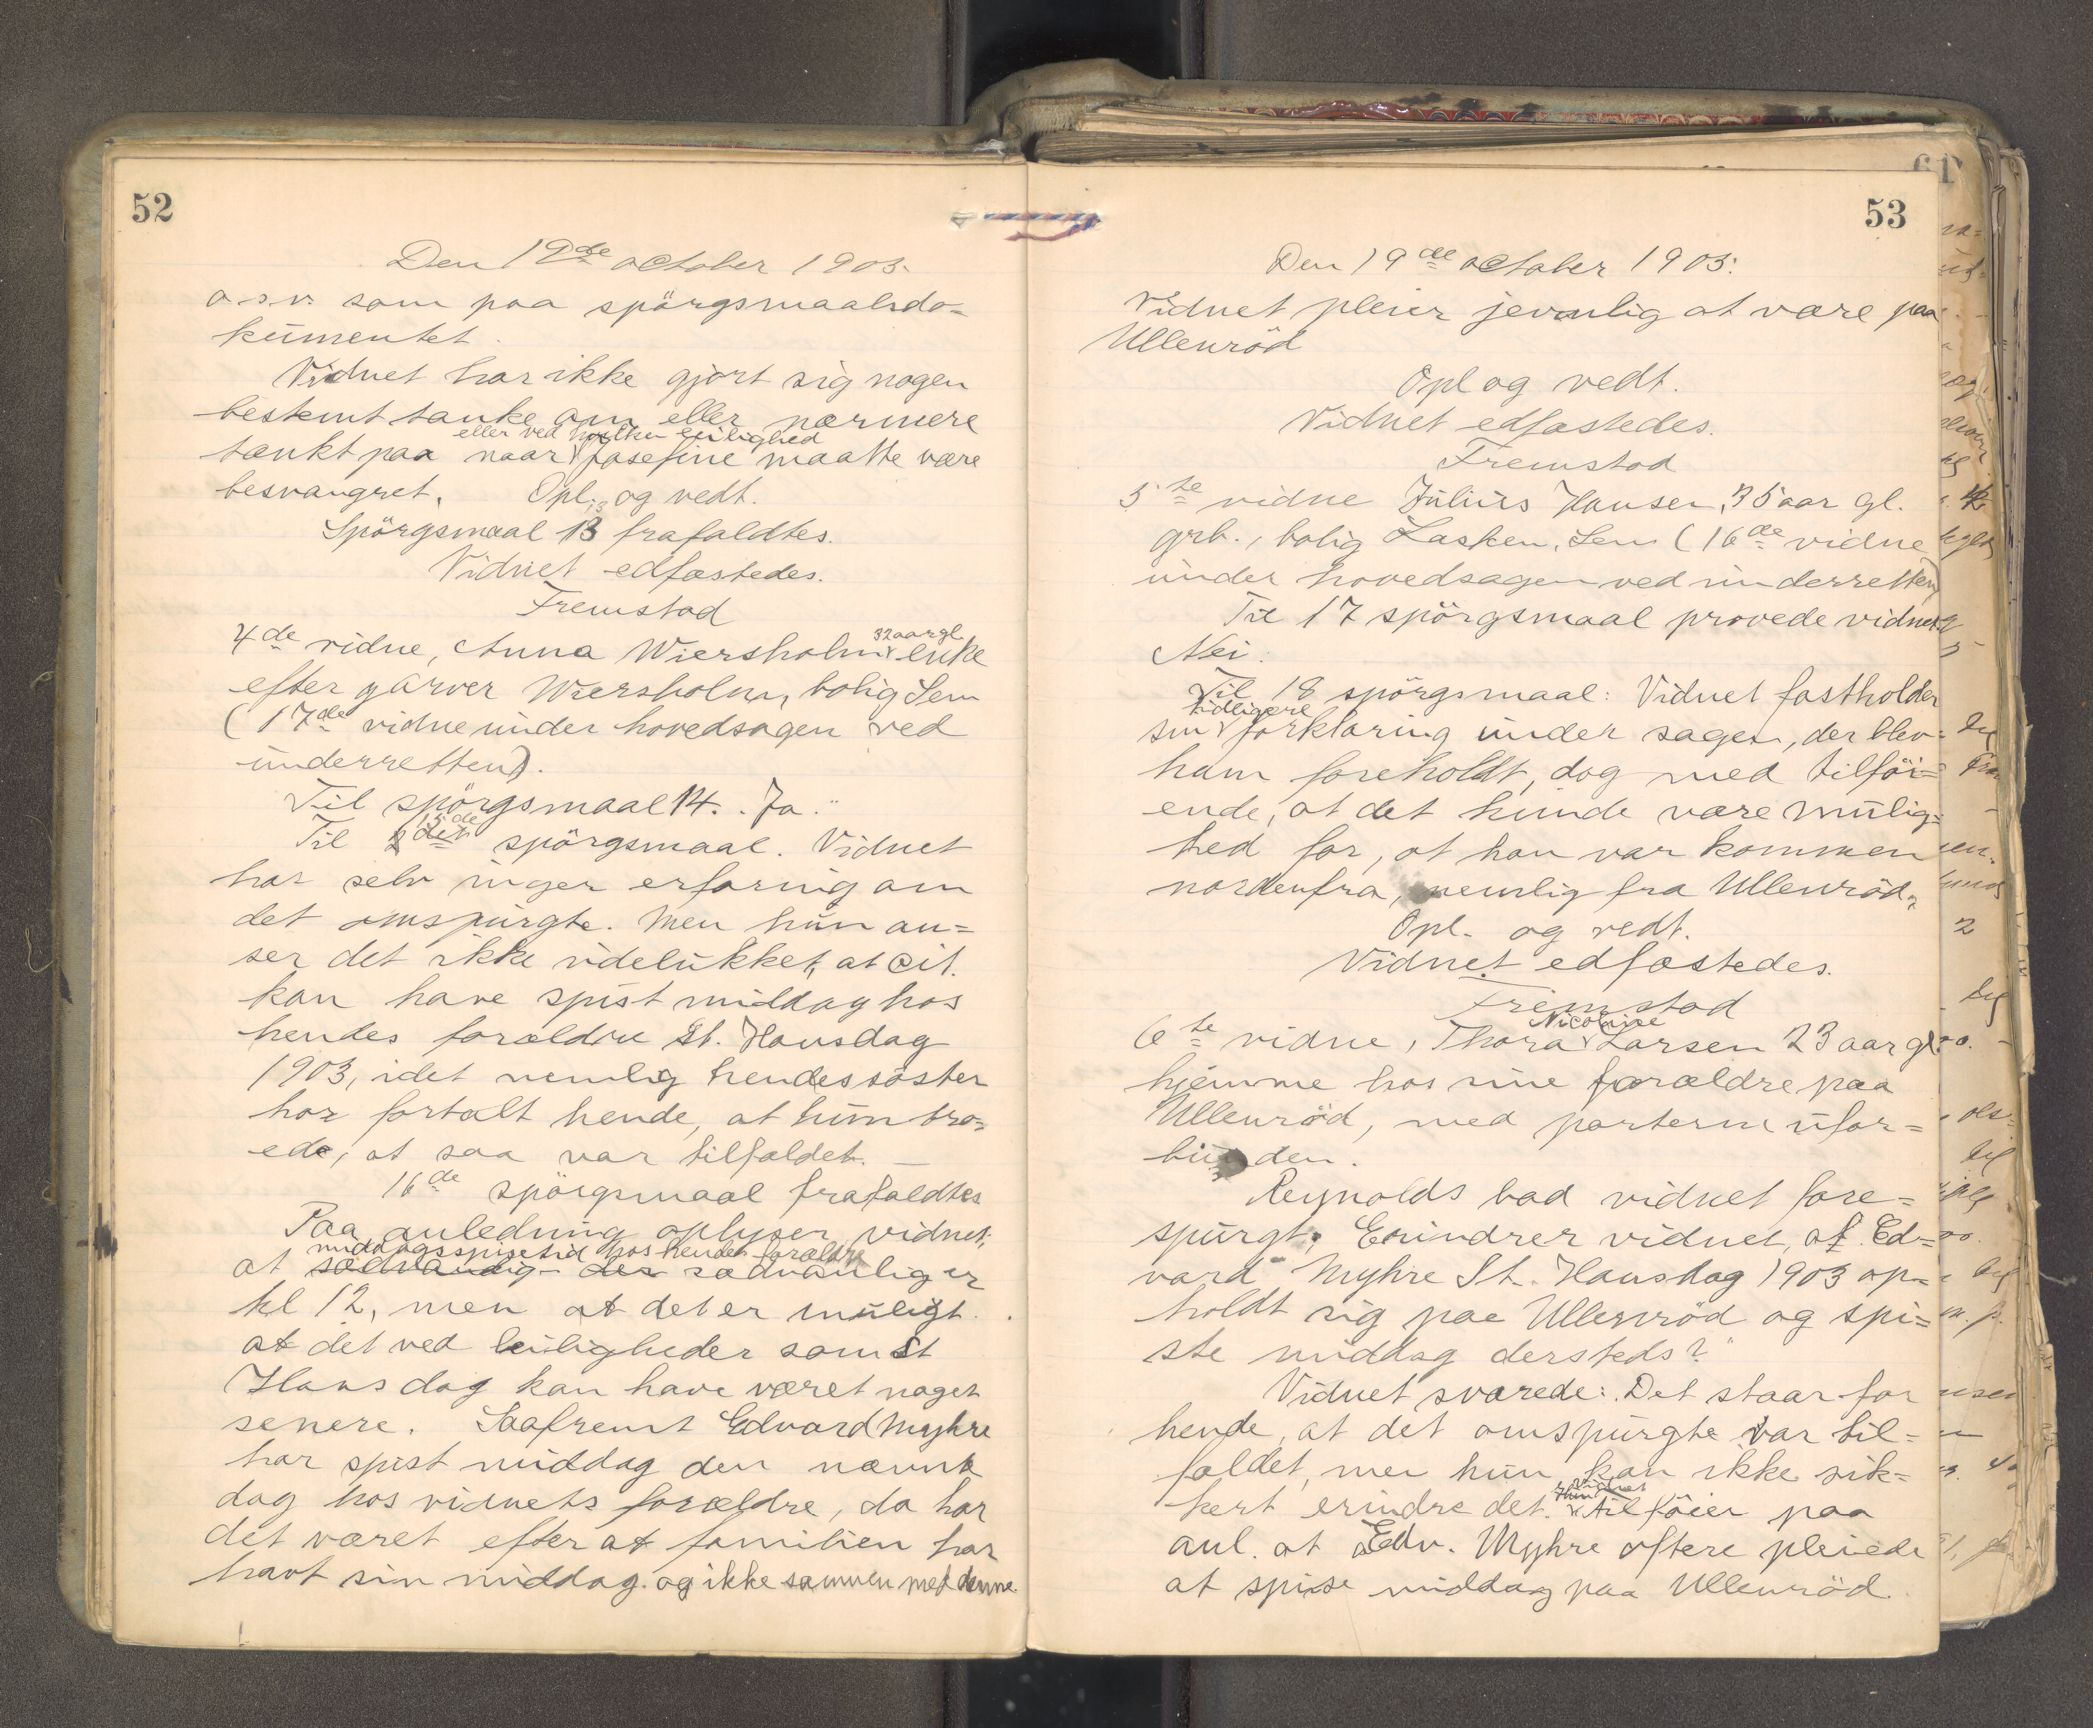 52
Den 19de october 1905.
o.s.v. som paa spörgsmaalsdo=
kumentet.
Vidnet har ikke gjort sig nogen
bestemt tanke om eller nærmere
eller ved hvilken leilighed
tænkt paa naar Josefine maatte være
besvangret. Opl. og vedt.
Spörgsmaal 13 frafaldtes.
Vidnet edfæstedes.
Fremstod
32 aar gl.
4de vidne, Anna Wiersholm enke
efter garver Wiersholm, bolig Sem
(17de vidne under hovedsagen ved
underretten).
Til spörgsmaal 14. "Ja."
15de
Til spörgsmaal. Vidnet
har selv ingen erfaring om
det omspurgte. Men hun an=
ser det ikke udelukket, at cit.
kan have spist middag hos
hendes forældre St. Hansdag
1903, idet nemlig hendes söster
har fortalt hende, at hun tro=
ede, at saa var tilfældet. —
16de spörgsmaal frafaldtes
Paa anledning oplyser vidnet,
middagsspisetid hos hendes forældre
at sædvanlig der sædvanlig er
kl 12, men at det er muligt
at det ved leiligheder som St
Hansdag kan have været noget
senere. Saafremt Edvard Myhre
har spist middag den nævnte
dag hos vidnets forældre, da har
det været efter at familien har
havt sin middag. og ikke sammen med denne.
53
Den 19de october 1905.
Vidnet pleier jevnlig at være paa
Ullenröd
Opl og vedt.
Vidnet edfæstedes.
Fremstod
5te vidne Julius Hansen, 35 aar gl.
grb., bolig Lasken, Sem (16de vidne
under hovedsagen ved underretten)
Til 17 spörgsmaal provede vidnet
Nei.
Til 18 spörgsmaal: Vidnet fastholder
tidligere
sin forklaring under sagen, der blev
ham foreholdt, dog med tilföi=
ende, at det kunde være mulig=
hed for, at han var kommen
nordenfra, nemlig fra Ullenröd.
Opl. og vedt.
Vidnet edfæstedes.
Fremstod
Nicoline
6te vidne, Thora Larsen 23 aar gl.
hjemme hos sine forældre paa
Ullenröd, med parterne ufor=
bunden.
Reynolds bad vidnet fore=
spurgt: Erindrer vidnet, at Ed=
vard Myhre St. Hansdag 1903 op=
holdt sig paa Ullenröd og spi=
ste middag dersteds?
Vidnet svarede: Det staar for
hende, at det omspurgte var til=
fældet, men hun kan ikke sik=
Hun vidnet
kert erindre det. tilföier paa
anl. at Edv. Myhre oftere pleiede
at spise middag paa Ullenröd.
61